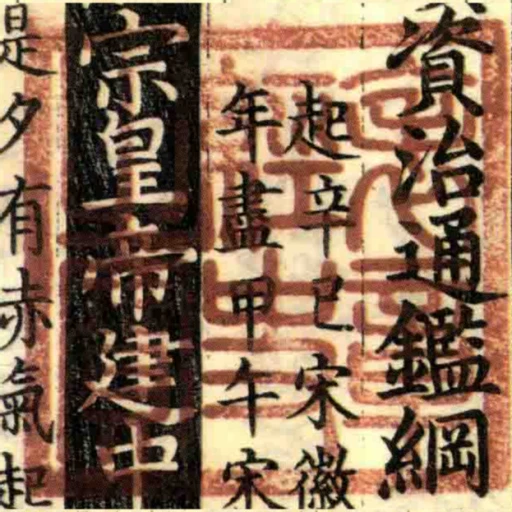 資治通鑑綱
起辛巳宋徽
年盡甲午宋
宗皇帝建中
是夕有赤氣起